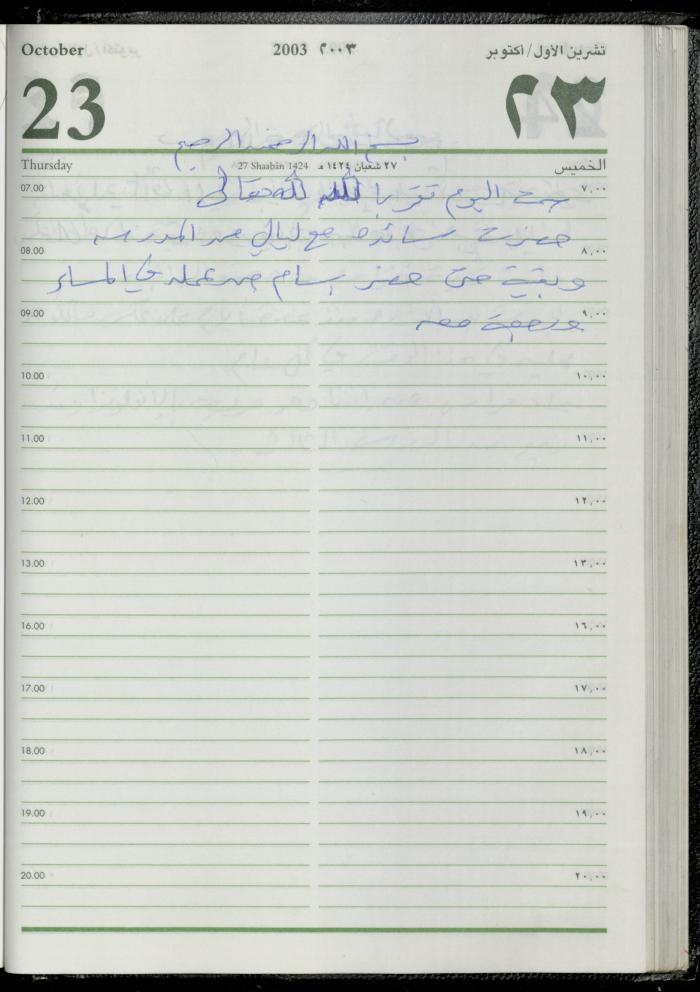 October 2003 ٢٠٠٣ تشرين الأول/أكتوبر
23 ٢٣
بسم الله الرحمن الرحيم
Thursday 27 Shaabin 1424 ٢٧ شعبان ١٤٢٤ هـ الخميس
07.00 ٧,٠٠
صمت اليوم تقربا لله تعالى
حضرت سائده مع ليالي من المدرسه
08.00 ٨,٠٠
وبقية حتى حضر بسام من عمله في المساء
09.00 ٩,٠٠
معه
10.00 ١٠,٠٠
11.00 ١١,٠٠
12.00 ١٢,٠٠
13.00 ١٣,٠٠
16.00 ١٦,٠٠
17.00 ١٧,٠٠
18.00 ١٨,٠٠
19.00 ١٩,٠٠
20.00 ٢٠,٠٠